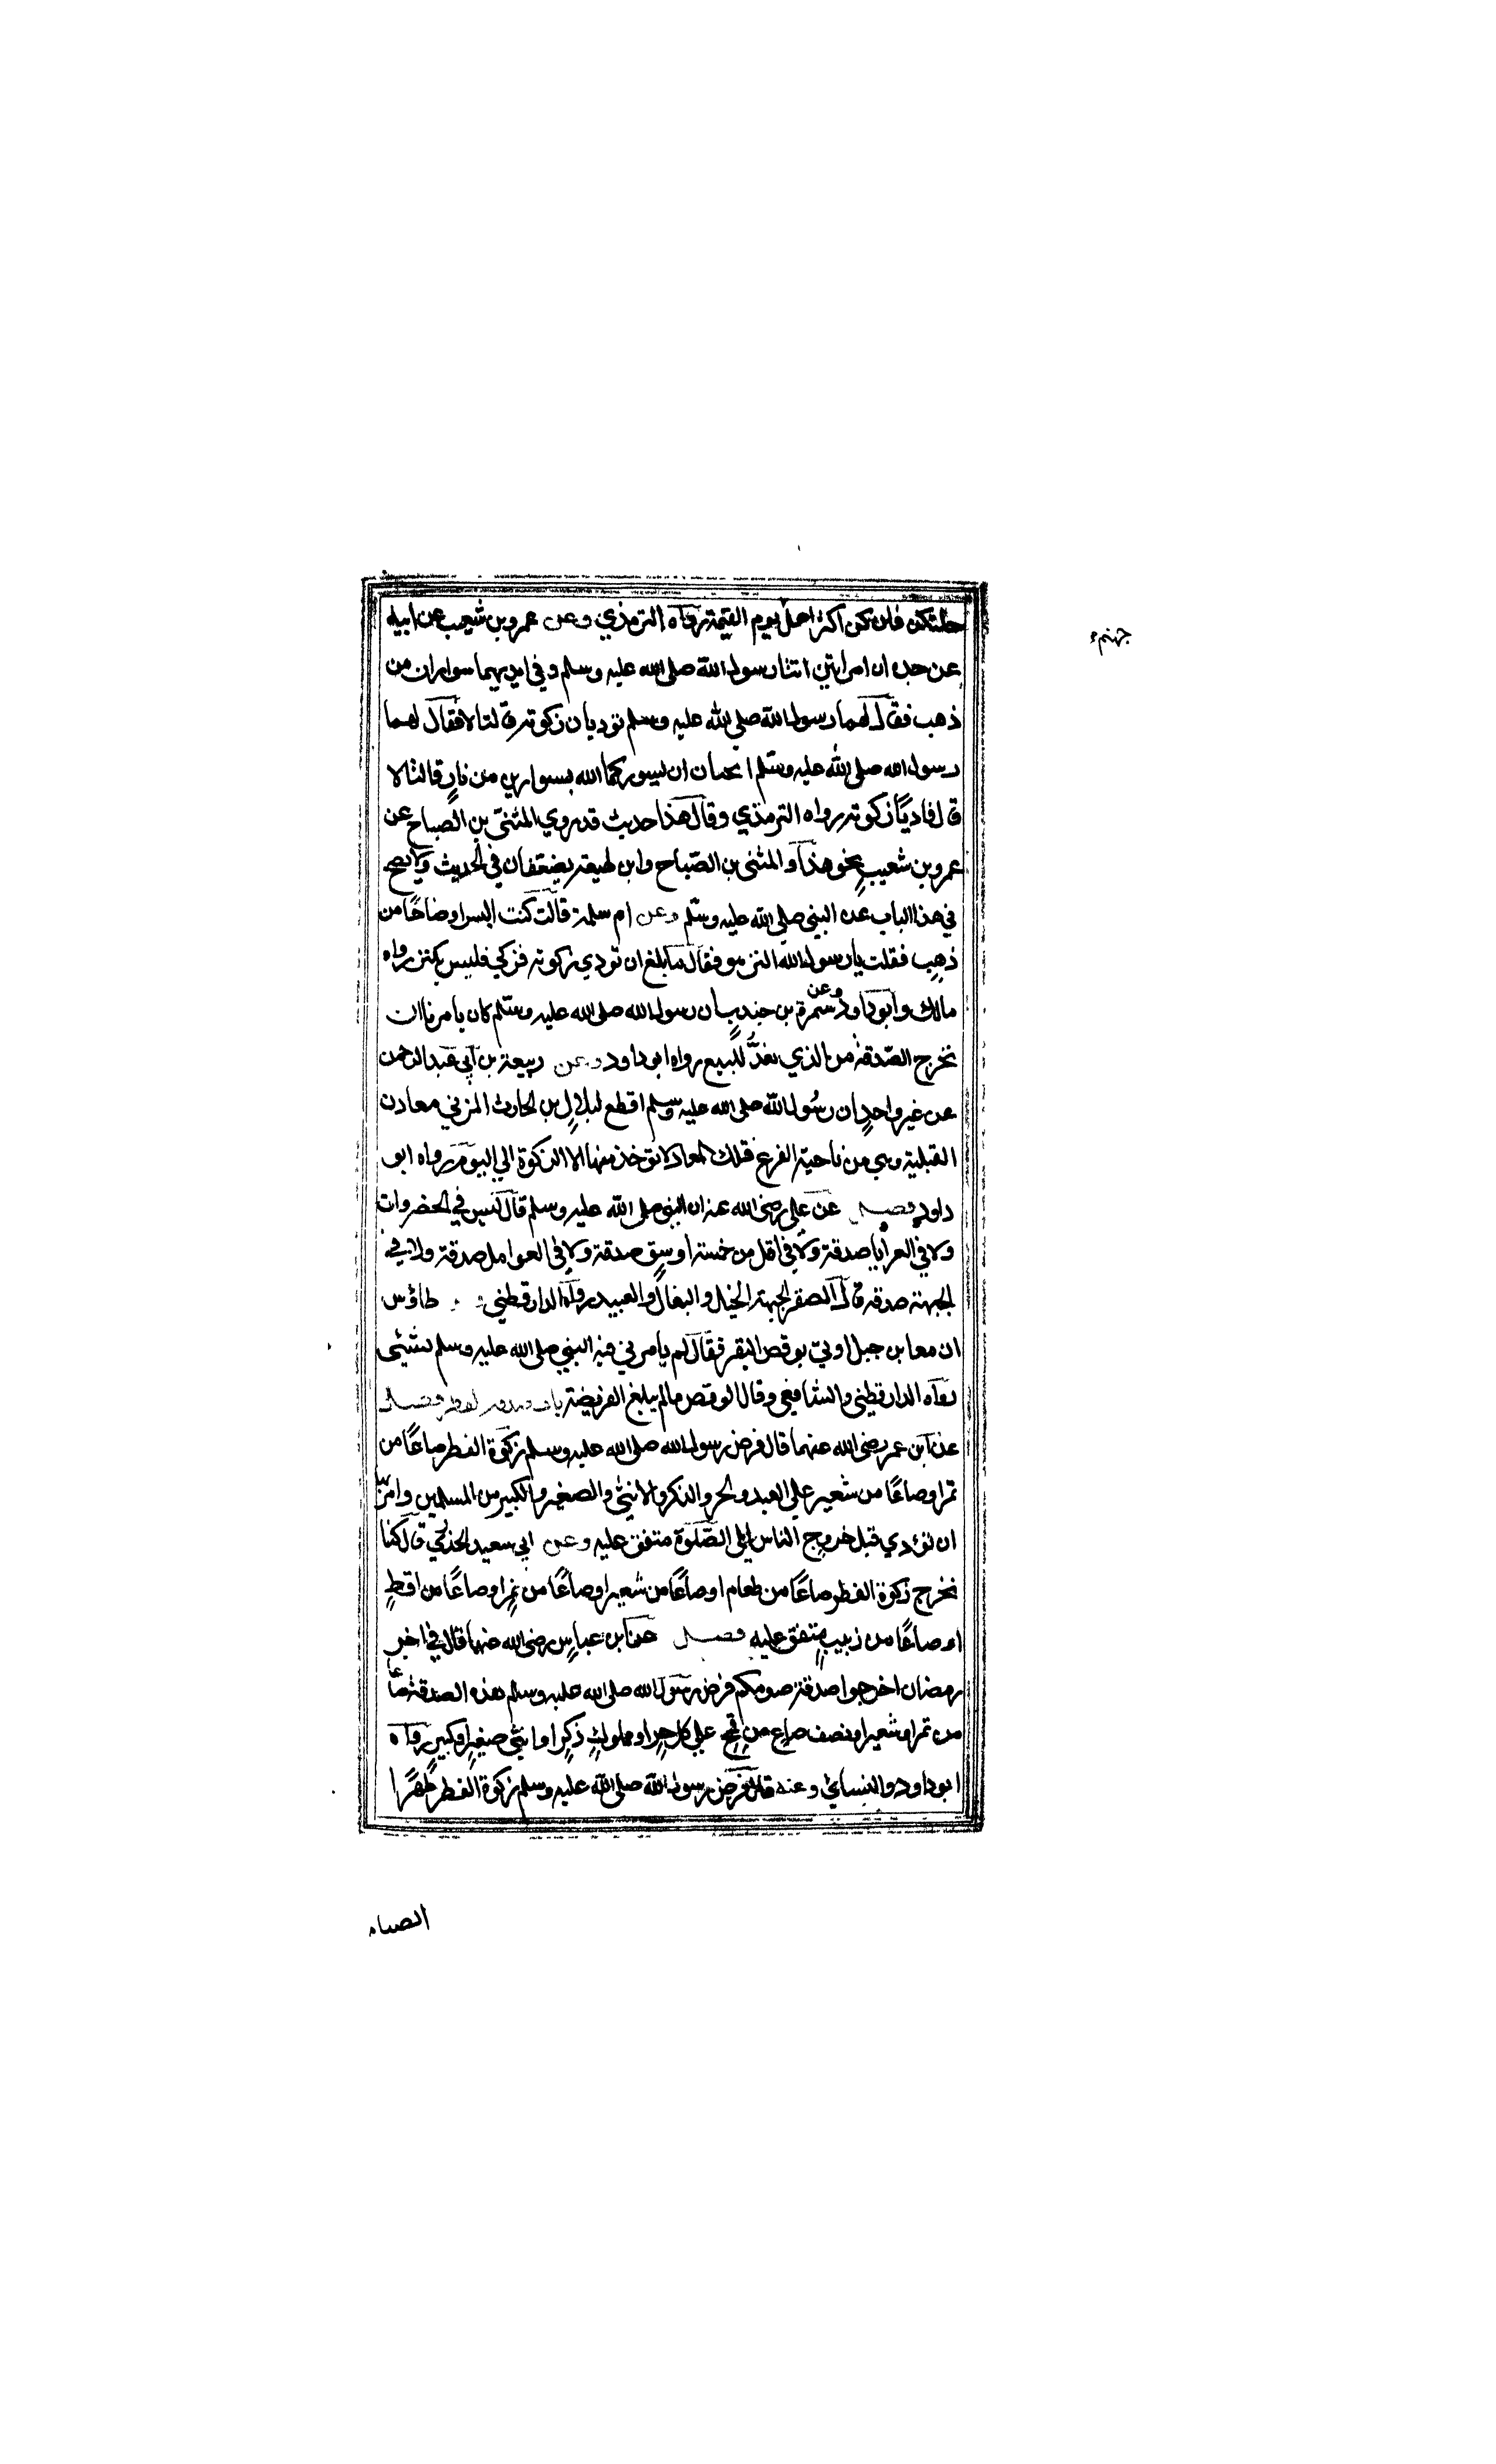 حليكن فانكن اكثر اهل يوم القيمة رواه الترمذي وعن عمرو بن شعيب عن ابيه
جهنم
عن جده ان امراتين اتتا رسول الله صلى الله عليه وسلم وفي ايديهما سواران من
ذهب فقال لهما رسول الله صلي الله عليه وسلم توديان زكوته قالتا لا فقال لهما
رسول الله صلي الله عليه وسلم اتحبان ان يسوركما الله بسوارين من نار قالتا لا
قال فاديا زكوته رواه الترمذي وقال هذا حديث قد روي المثنى بن الصباح عن
عمرو بن شعيب نحو هذا والمثنى بن الصباح وابن لهيعة يضعفان في الحديث ولا يصح
في هذا الباب عن النبي صلي الله عليه وسلم وعن ام سلمة قالت كنت البس اوضاحا من
ذهب فقلت يا رسول الله اكنز هو فقال ما بلغ ان تودي زكوته فزكي فليس بكنز رواه
مالك وابو داود وعن سمرة بن جندب ان رسول الله صلى الله عليه وسلم كان يامرنا ان
نخرج الصدقة من الذي نعد للبيع رواه ابو داود وعن ربيعة بن ابي عبد الرحمن
عن غير واحد ان رسول الله صلى الله عليه وسلم اقطع لبلال بن الحارث المزني معادن
القبلية وهي من ناحية الفرع فتلك المعادن لا توخذ منها الا الزكوة الي اليوم رواه ابو
داود فصل عن علي رضى الله عنه ان النبي صلى الله عليه وسلم قال ليس في الخضروات
ولا في العرايا صدقة ولا في اقل من خمسة اوسق صدقة ولا في العوامل صدقة ولا في
الجبهة صدقة قال الصقر الجبهة الخيل والبغال والعبيد رواه الدارقطني طاؤس
ان معاذ بن جبل اوتي بوقص البقر فقال لم يامرني فيه النبي صلى الله عليه وسلم بشيئ
رواه الدارقطني والشافعي وقال الوقص مالم يبلغ الفريضة باب صدقة الفطر فصل
عن ابن عمر رضى الله عنهما قال فرض رسول الله صلى الله عليه وسلم زكوة الفطر صاعًا من
تمر او صاعًا من شعير علي العبد والحر والذكر والانثى والصغير والكبير من المسلمين وامر بها
ان تؤدي قبل خروج الناس الى الصلوة متفق عليه وعن ابي سعيد الخدري قال كنا
نخرج زكوة الفطر صاعًا من طعام او صاعًا من شعير او صاعًا من تمر او صاعًا من اقط
او صاعًا من زبيب متفق عليه فصل عن ابن عباس رضى الله عنهما قال في اخر
رمضان اخرجوا صدقة صومكم فرض رسول الله صلى الله عليه وسلم هذه الصدقة صاعًا
من تمر او شعير او نصف صاع من قمح علي كل حر او مملوك ذكر او انثى صغير او كبير رواه
ابو داود والنسائي وعنه قال فرض رسول الله صلى الله عليه وسلم زكوة الفطر طهرًا
الصيام